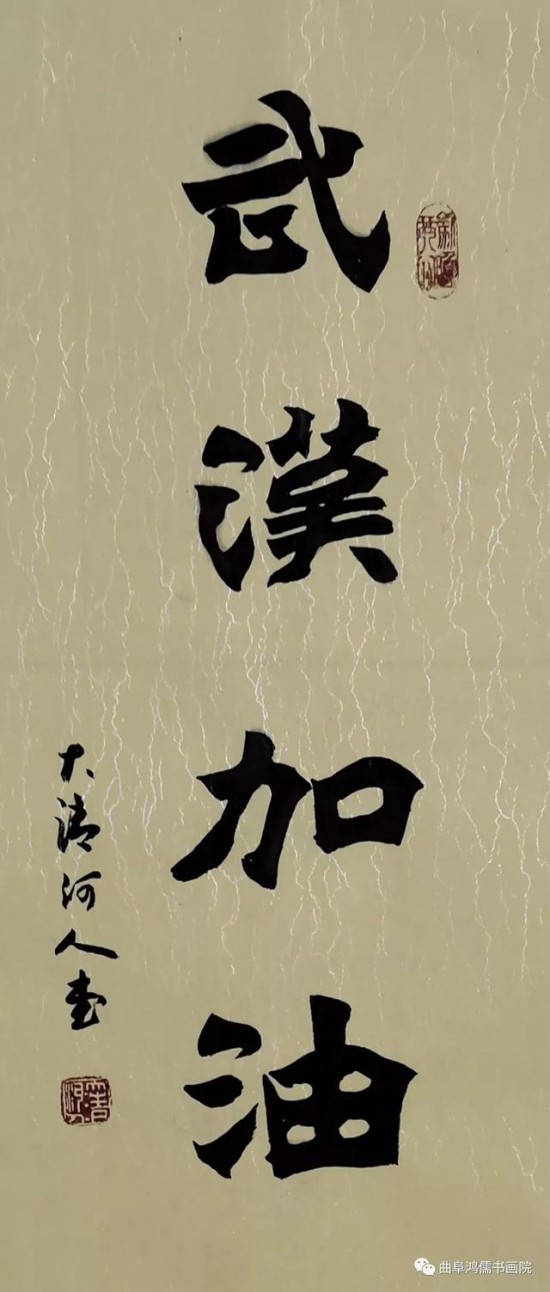 武漢加油
大清河人書
曲阜鸿儒书画院